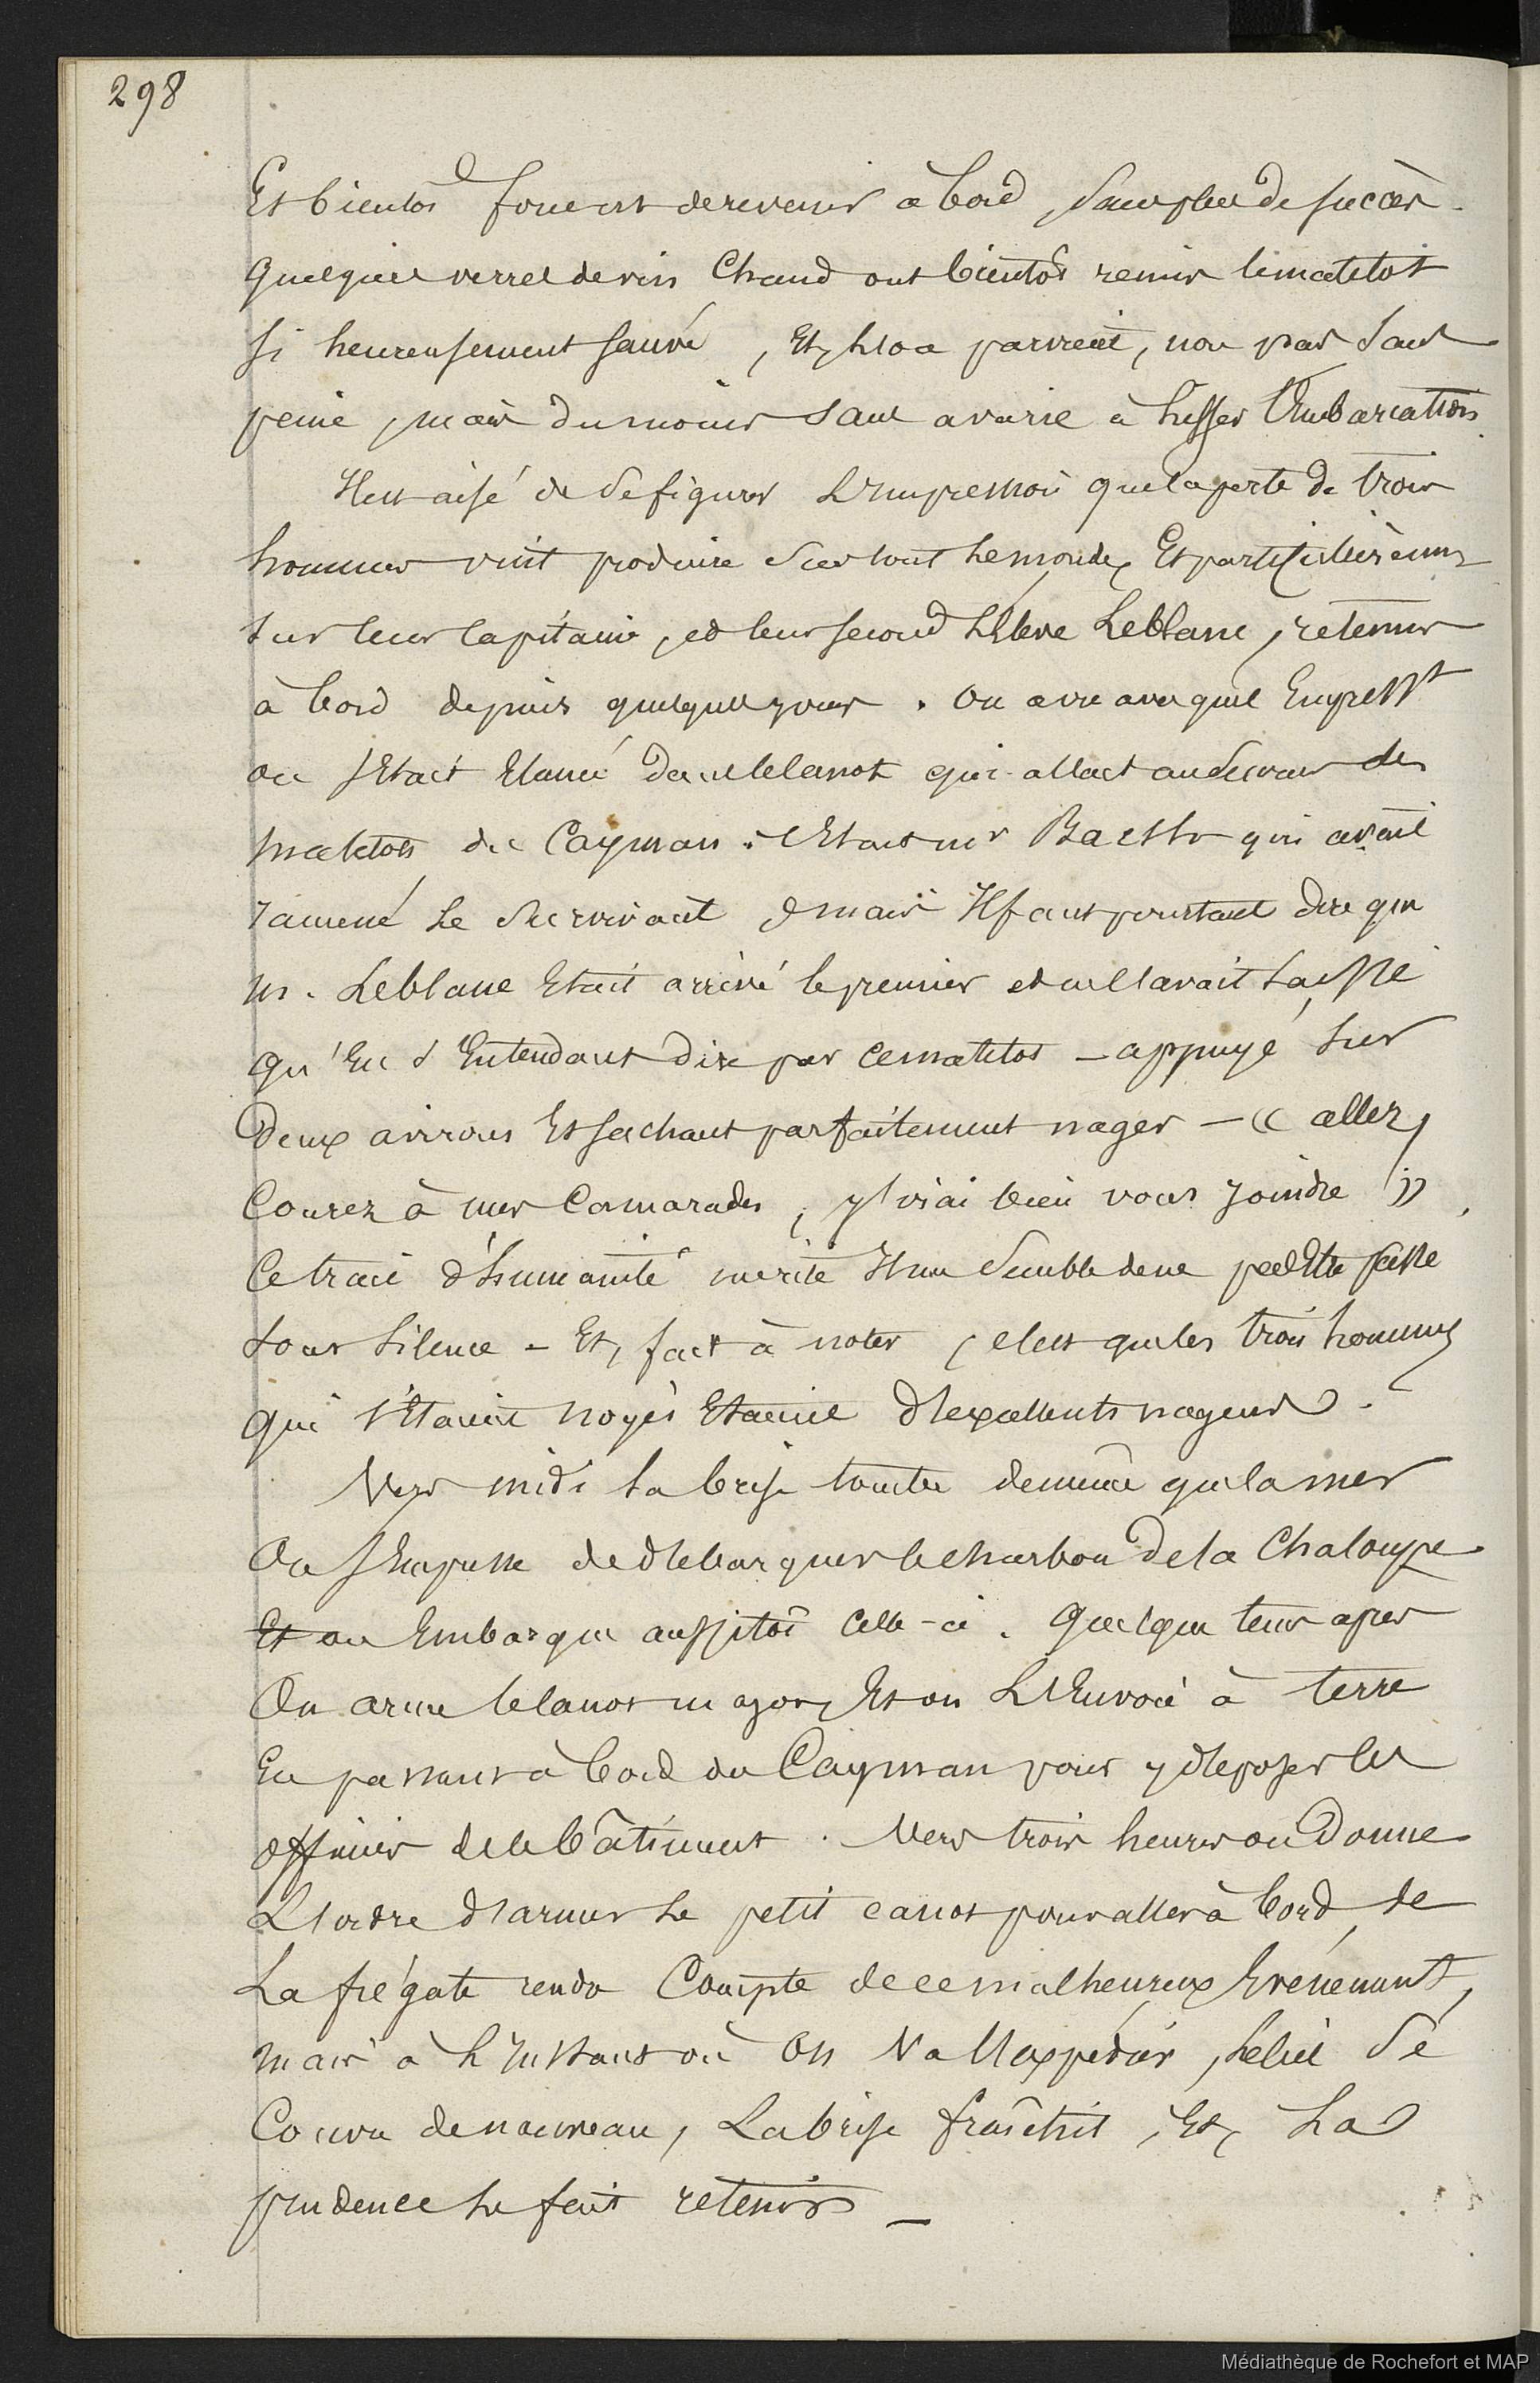 298
Et bientôt forcent de revenir à bord, sans plus de succès.
Quelques verres de vin Chaud ont bientôt remis le matelot
si heureusement sauvé, Et, l'on a parvient, non pas sans
peine, mais du moins sans avarie à hisser l'Embarcation.
Il est aisé de se figurer L'Impression que la perte de trois
hommes vint produire sur tout le monde, Et particulièrem.t
sur leur Capitaine, et leur second l'élève Leblanc, retenus
à bord depuis quelques jours. On a vu avec quel Empress.t
on s'Etait Elancé dans le Canot qui allait au secours des
matelots du Cayman. C'Etait mr qui avait
ramené le survivant mais Il faut pourtant dire que
m. Leblanc Etait arrivé le premier et ne l'avait laissé
qu'En s'Entendant dire par ce matelot – appuyé sur
Deux avirons Et sachant parfaitement nager – « allez,
Courez à mes Camarades, j'irai bien vous joindre ».
Ce trait d'humanité mérite Il me semble de ne pas Etre passé
sous silence – Et, fait à noter, c'est que les trois hommes
qui s'Etaient noyés Etaient d'excellents nageurs.
Vers midi la brise tombe de même que la mer
On s'Empresse de débarquer le charbon de la Chaloupe
Et on Embarque aussitôt Celle-ci. Quelque tems après
On arme le canot major, Et on L'Envoie à terre
En passant à bord du Cayman pour y déposer les
officiers de ce bâtiment. Vers trois heures on Donne
L'ordre d'armer le petit canot pour aller à bord de
La frégate rendre Compte de ce malheureux Evénement,
mais à L'Instant où On Va l'expédier, le ciel se
Couvre de nouveau, La brise fraîchit, Et, La
prudence le fait retenir –
Médiathèque de Rochefort et MAP